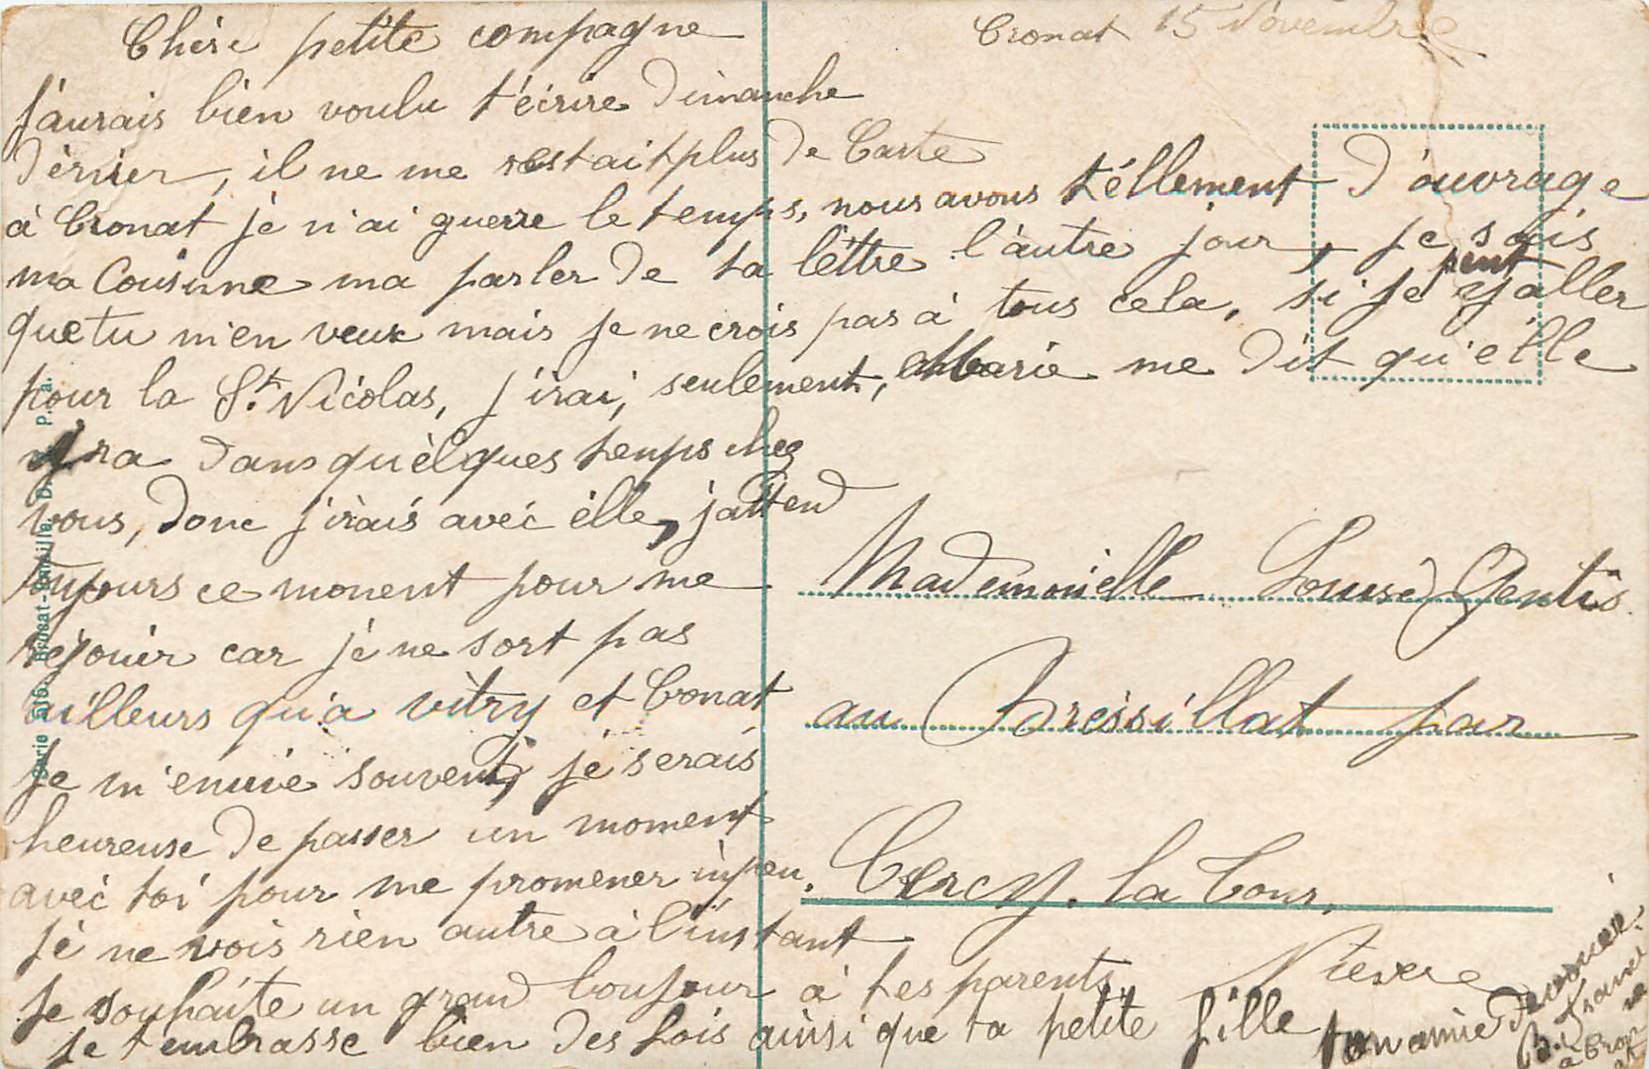 Cronat 15 Novembre
Chère petite compagne
J'aurais bien voulu t'écrire Dimanche
Dérnier, il ne me restait plus De Carte
à Cronat je n'ai guerre le temps, nous avons téllement D'ouvrage
ma Cousine ma parler De ta léttre l'autre jour, je sais
que tu m'en veux mais je ne crois pas à tous cela, si je peut y aller
pour la St Nicolas, j'irai, seulement, Marie me Dit qu'élle
ira Dans quèlques temps chez
vous, Donc j'irais avéc élle, jattend
toujours ce moment pour me
réjouir car jé ne sort pas
ailleurs qu'a vitry et Cronat
je m'ennuie souvent, jé serais
heureuse De passer un moment
avéc toi pour me promener un peu.
Jé ne vois rien autre à l'instant
Je souhaite un grand boujour à tes parents.
Je t'embrasse bien Des fois ainsi que ta petite fille
ton amie
à Cronat
Mademoiselle Louise Gentis
au Bréssillat par
Cercy. la Tour.
Nièvre
Serie 515.